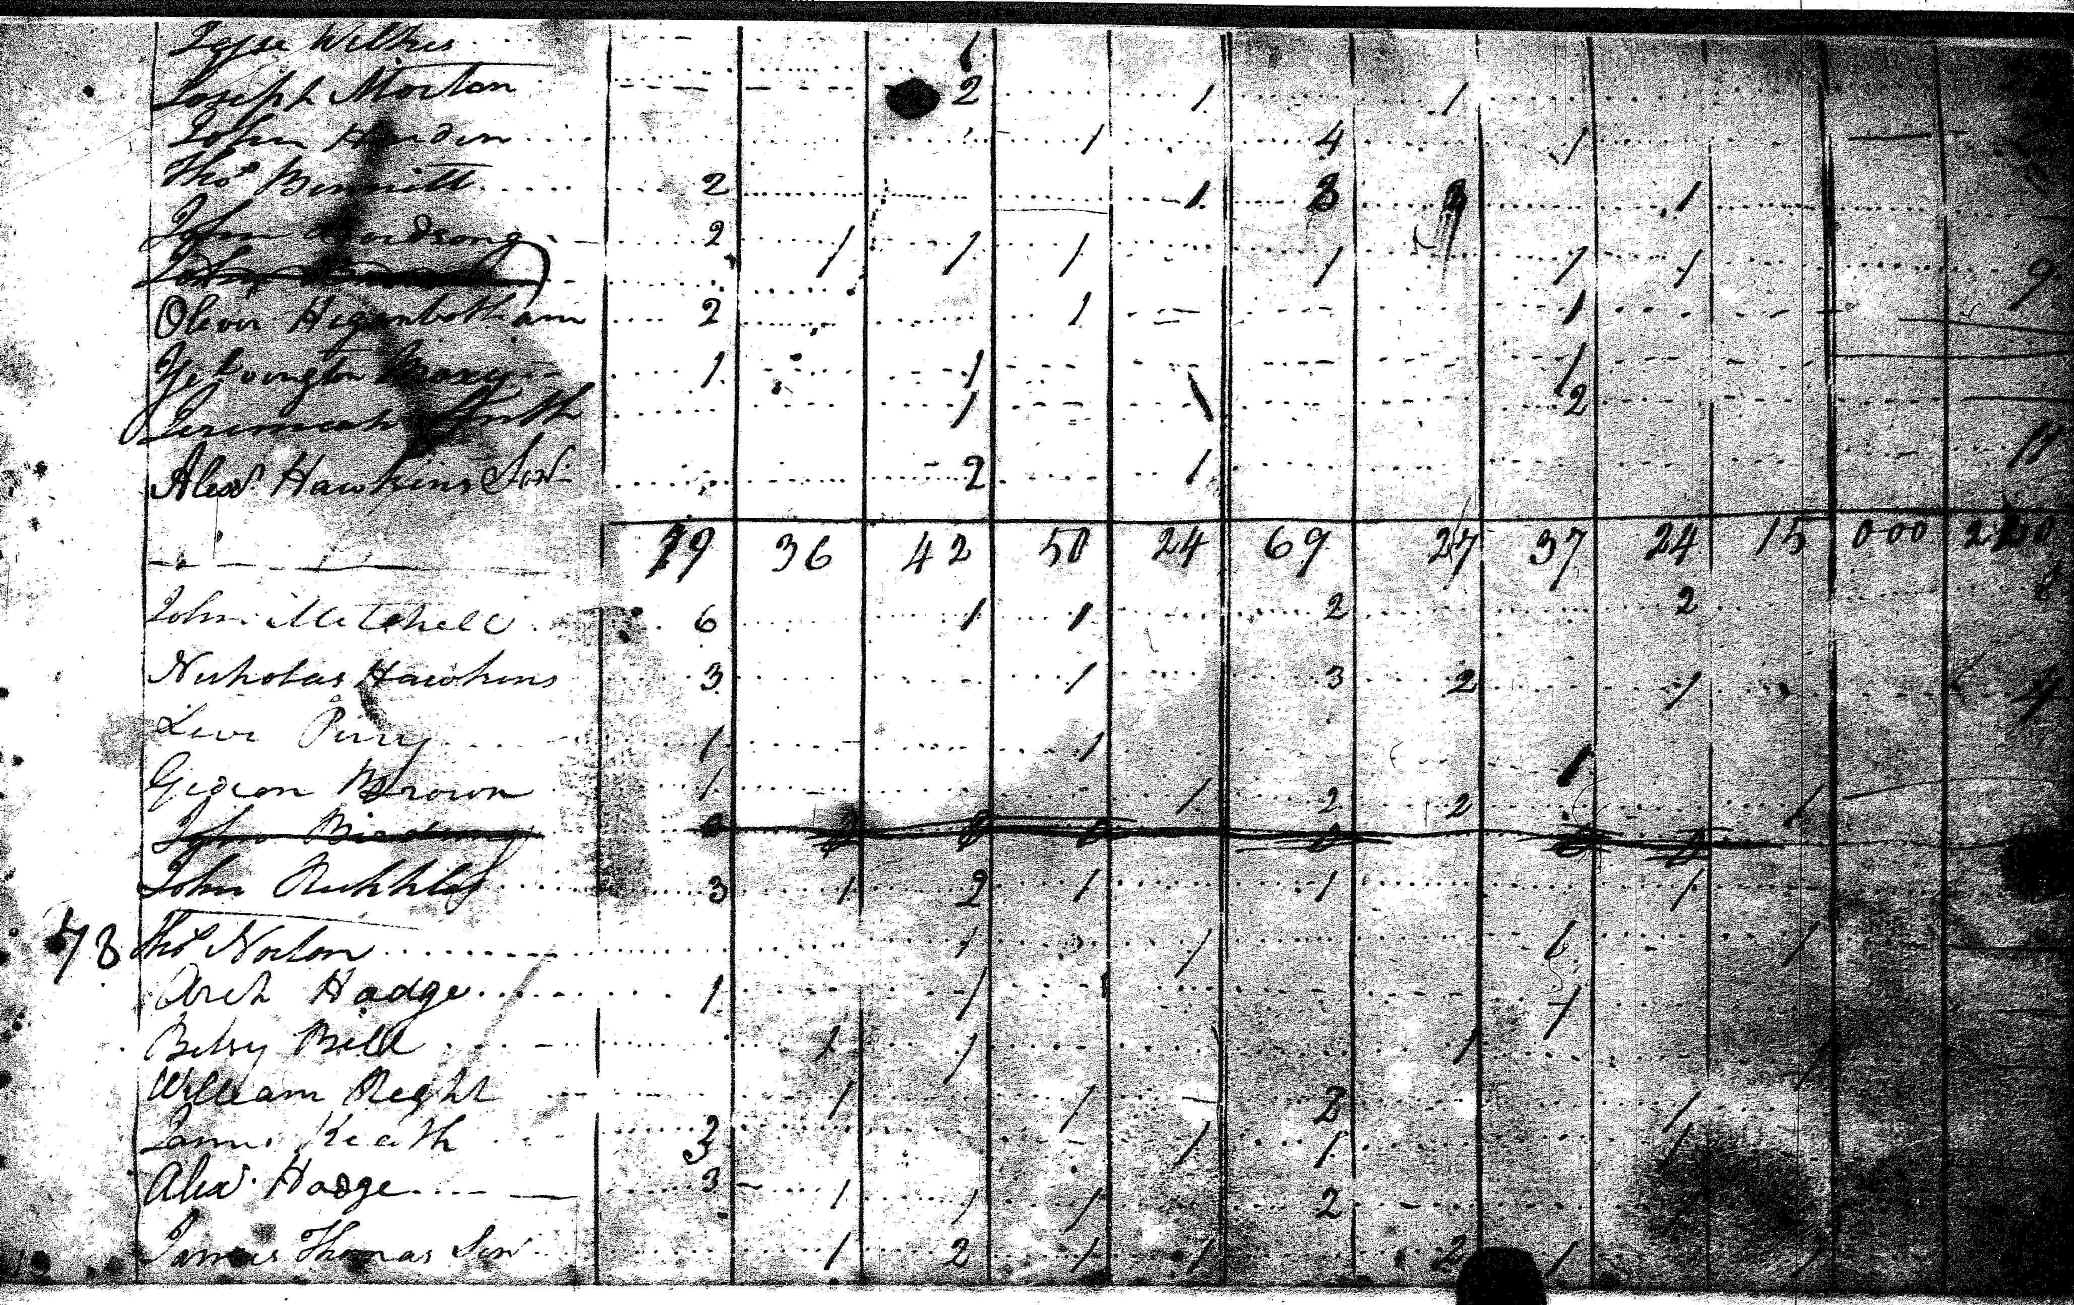 Jesse Wilkes 1
Joseph Morton 2 1 1
John Hardin 1 4 1
Thos Bennitt 2 1 3 1
John Birdsong 2 1 1 1 1 1 1 9
Oliver Higenbotham 2 1 1
Yelvington 1 1 1
Jeremiah Smith 1 2
Alexr Hawkins Senr 2 1 11
79 36 42 50 24 69 27 37 24 15 000
John Mitchell 6 1 1 2 2
Nicholas Hawkins 3 1 3 2 1
Levi Perry 1 1 1
Gideon Brown 1 1 2 2 1
John Birdsong
John 3 1 2 1 1 1
78 Thos Norton 1 1 1 1
Arch Hodge 1 1 1
Betsy Bell 1 1 1 1
William Right 1 1 2 1
James Keath 3 1 1 1
Alexr Hodge 3 1 1 1 2
James Thomas Senr 1 2 1 1 2 1